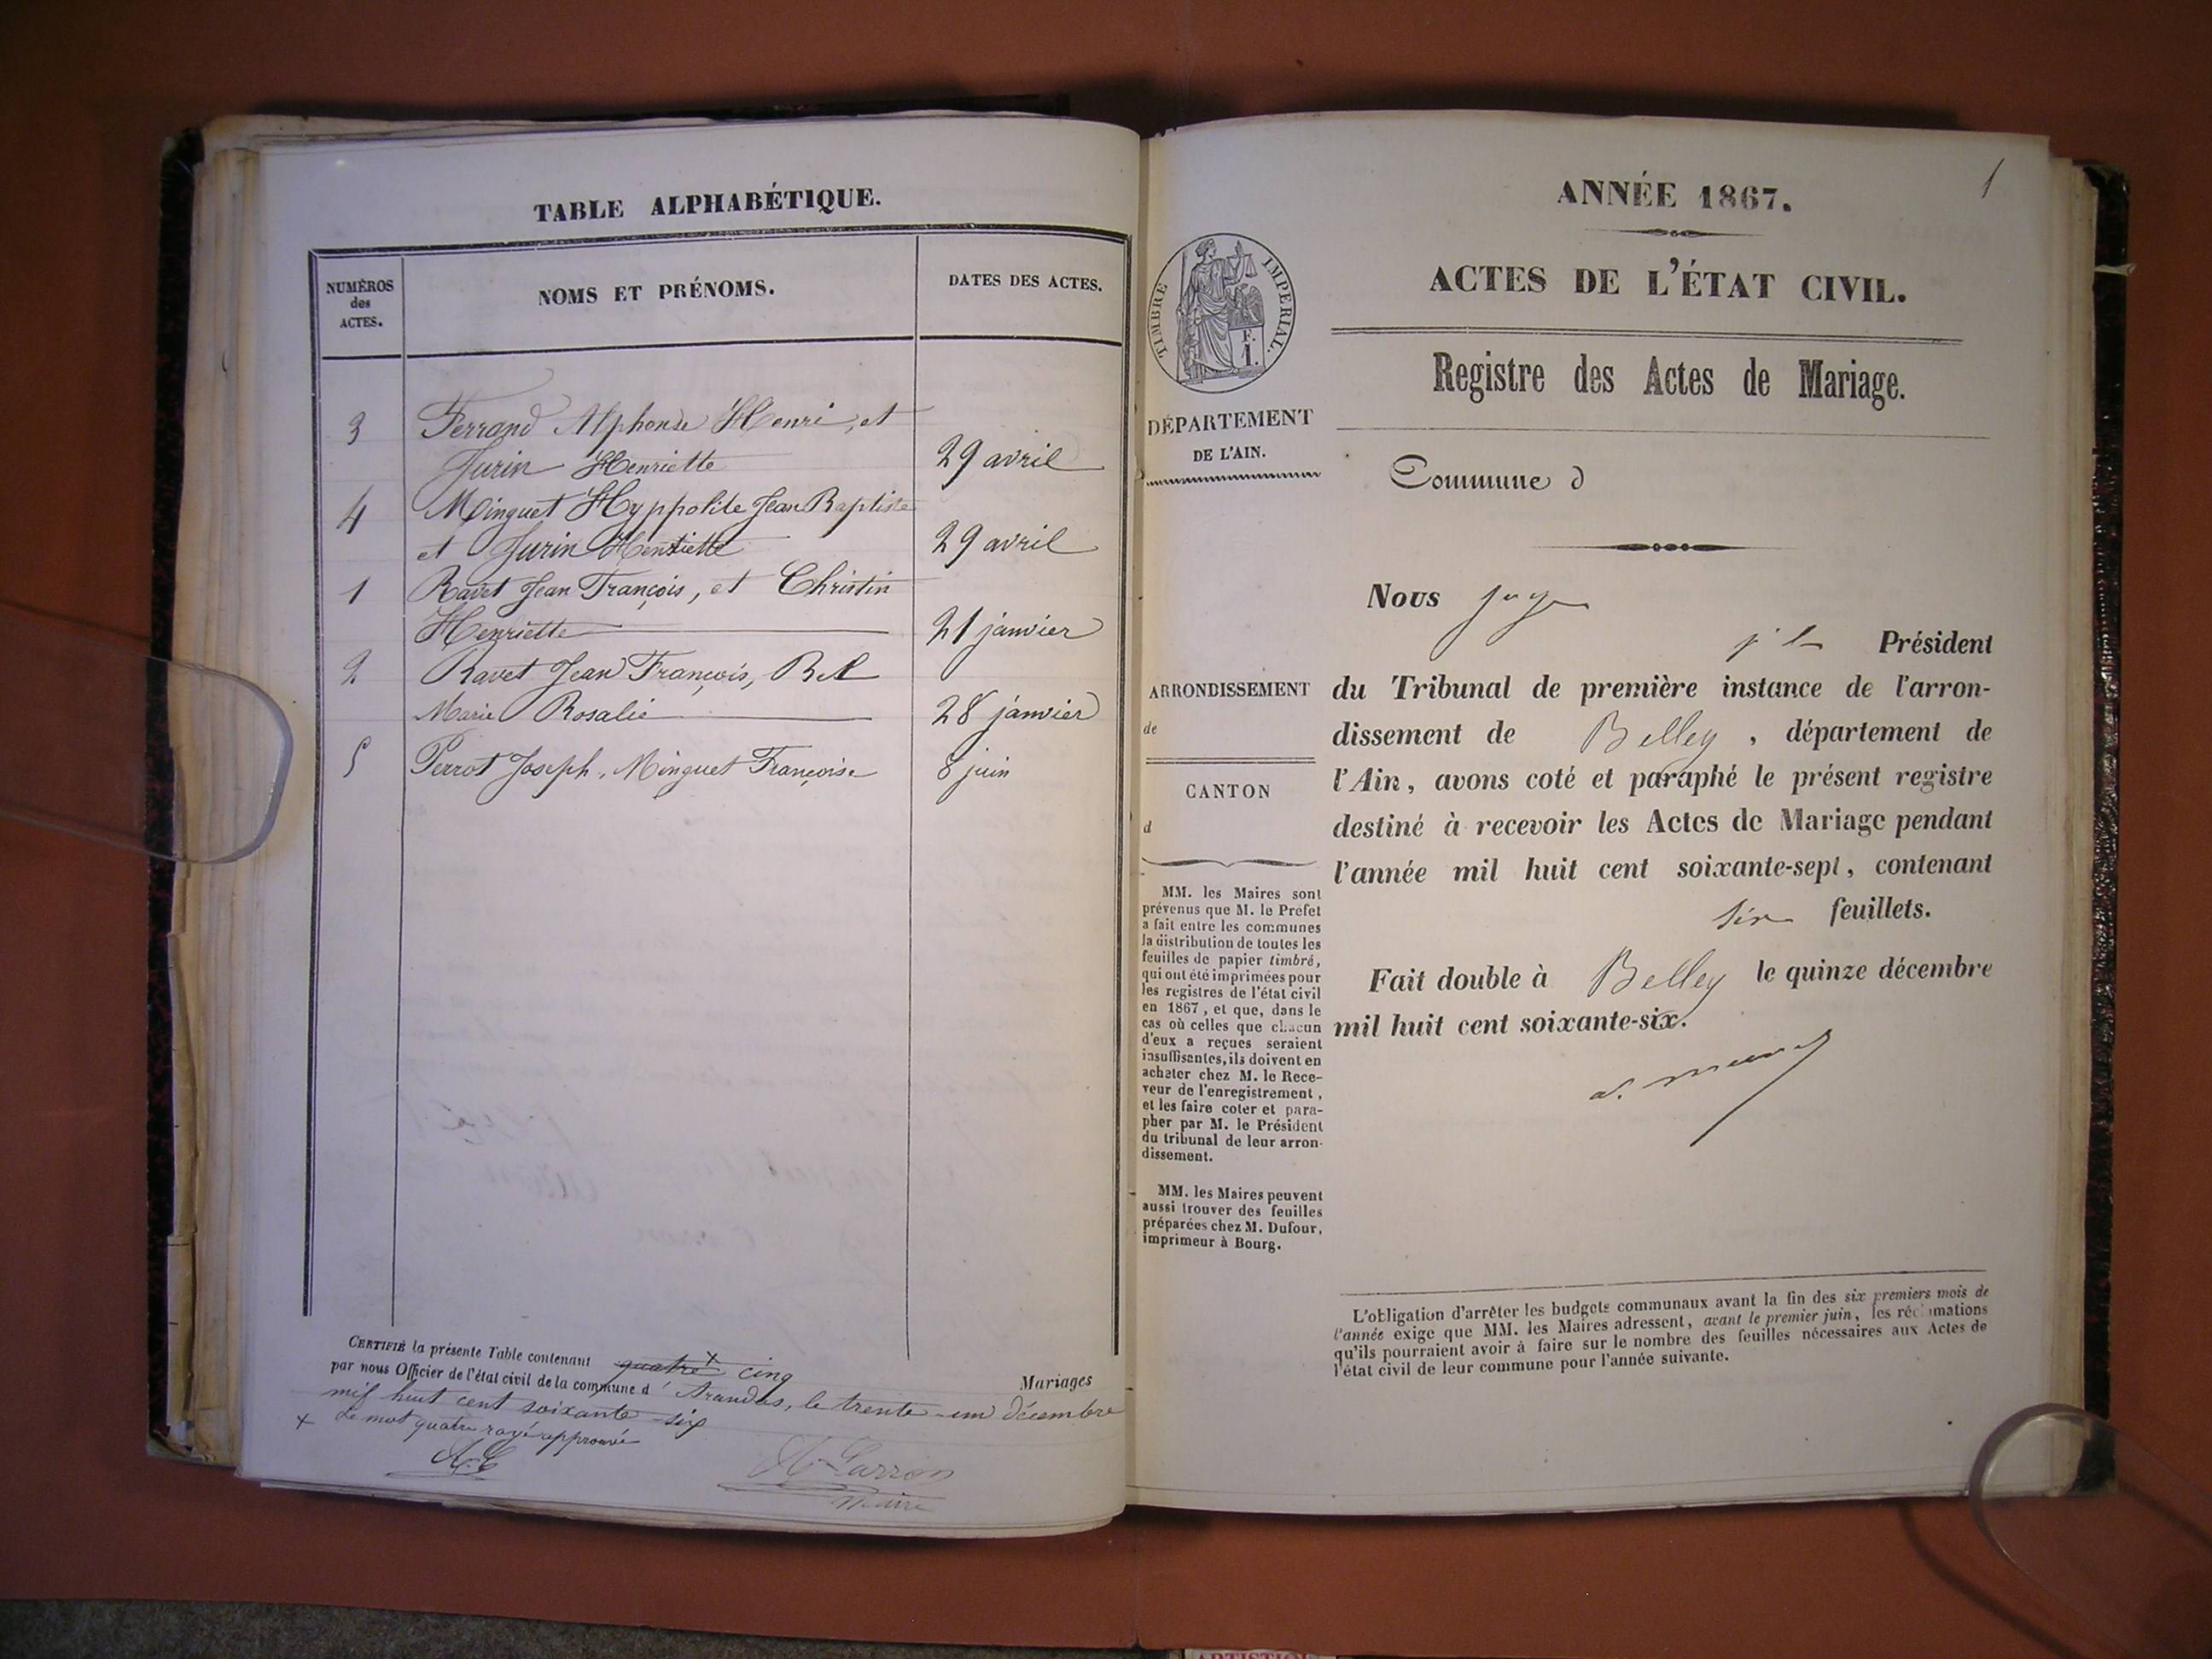 TABLE ALPHABÉTIQUE.
NUMÉROS
des
ACTES.
NOMS ET PRÉNOMS.
DATES DES ACTES.
3 Ferrand Alphonse Henri, et
Jurin Henriette 29 avril
4 Minguet Hyppolite Jean Baptiste
et Jurin Henriette 29 avril
1 Ravet Jean François, et Christin
Henriette 21 janvier
2 Ravet Jean François, Bel
Marie Rosalie 28 janvier
5 Perrot Joseph, Minguet Françoise 8 juin
CERTIFIÉ la présente Table contenant quatre x cinq Mariages
par nous Officier de l'état civil de la commune d'Arandas, le trente-un décembre
mil huit cent soixante-six
x Le mot quatre rayé approuvé
A. C
A Carron
Maire
1
ANNÉE 1867.
ACTES DE L'ÉTAT CIVIL.
Registre des Actes de Mariage.
TIMBRE IMPERIAL.
F.
1.
DÉPARTEMENT
DE L'AIN.
Commune d
Nous juge
Président
du Tribunal de première instance de l'arron-
dissement de Belley, département de
l'Ain, avons coté et paraphé le présent registre
destiné à recevoir les Actes de Mariage pendant
l'année mil huit cent soixante-sept, contenant
six feuillets.
Fait double à Belley le quinze décembre
mil huit cent soixante-six.
ARRONDISSEMENT
de
CANTON
d
MM. les Maires sont
prévenus que M. le Préfet
a fait entre les communes
la distribution de toutes les
feuilles de papier timbré,
qui ont été imprimées pour
les registres de l'état civil
en 1867, et que, dans le
cas où celles que chacun
d'eux a reçues seraient
insuffisantes, ils doivent en
acheter chez M. le Rece-
veur de l'enregistrement,
et les faire coter et para-
pher par M. le Président
du tribunal de leur arron-
dissement.
MM. les Maires peuvent
aussi trouver des feuilles
préparées chez M. Dufour,
imprimeur à Bourg.
L'obligation d'arrêter les budgets communaux avant la fin des six premiers mois de
l'année exige que MM. les Maires adressent, avant le premier juin, les réclamations
qu'ils pourraient avoir à faire sur le nombre des feuilles nécessaires aux Actes de
l'état civil de leur commune pour l'année suivante.